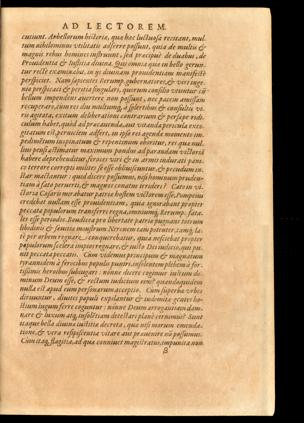 AD LECTOREM.
cutiunt. Arbellorum historia, quæ hoc luctuosa recitant, mul-
tum nihilominus vtilitatis adferre possunt, quia de multis &
magnis rebus homines instruunt, sed præcipuè de duabus, de
Prouidentia & Iustitia diuina. Qui omnia quæ in bello gerun-
tur rectè examinabit, in ijs diuinam prouidentiam manifestè
perspiciet. Nam sapientes Rerump. gubernatores, & viri inge-
nio perspicaci & peritia singulari, quorum consilio
bellum impendens auertere non possunt, nec pacem amissam
recuperare, cum res diu multumq; à
ria agitata, exitum deliberationi contrarium & persæpe ridi-
culum habet, quòd ad præcauenda, aut vitanda pericula exco-
gitatum est perniciem adfert, in ipso rei agendæ momento im-
pedimentum inopinatum & repentinum oboritur, res quæ nul-
lius pensi æstimatur maximum pondus ad parandam victoriã
habere deprehenditur, fortes viri & in armis indurati pani-
co terrore correpti milites se esse obliuiscuntur, & pecudum in-
star mactantur: quid dicere possumus, nisi hominum pruden-
tiam à fato peruerti, & magnos conatus irrideri? Cato in vi-
ctoria Cæsaris
credebat nullam esse prouidentiam, quia ignorabant propter
peccata populorum transferri regna,
les esse periodos.
libidinis & sæuitiæ monstrum Neronem tam potenter, tamq; la-
tè per orbem regnare, conquerebatur, quia nesciebat propter
populorum scelera impios regnare, & iusto Dei iudicio,
niri peccata peccatis. Cum videmus principum & magnatum
tyrannidem à ferocibus populis puniri, insolentem plebem à for-
tissimis heroibus subiugari: nonne dicere cogimur iustum do-
minum Deum esse, & rectum iudicium eius? quandoquidem
nulla est apud eum personarum acceptio. Cum superbæ vrbes
diruuntur, diuites populi expilantur & indomitæ gentes ho-
stium iugum ferre coguntur: nonne Deum arrogantiam dam-
nare & luxum atq; insolentiam detestari planè cernimus? Sunt
itaque bella diuinæ iustitiæ decreta, quæ nisi morum emenda-
tione, & vera resipiscentia vitare aut præuenire nõ possumus.
Cum itaq; flagitia, ad quæ conniuet magistratus, impunita non